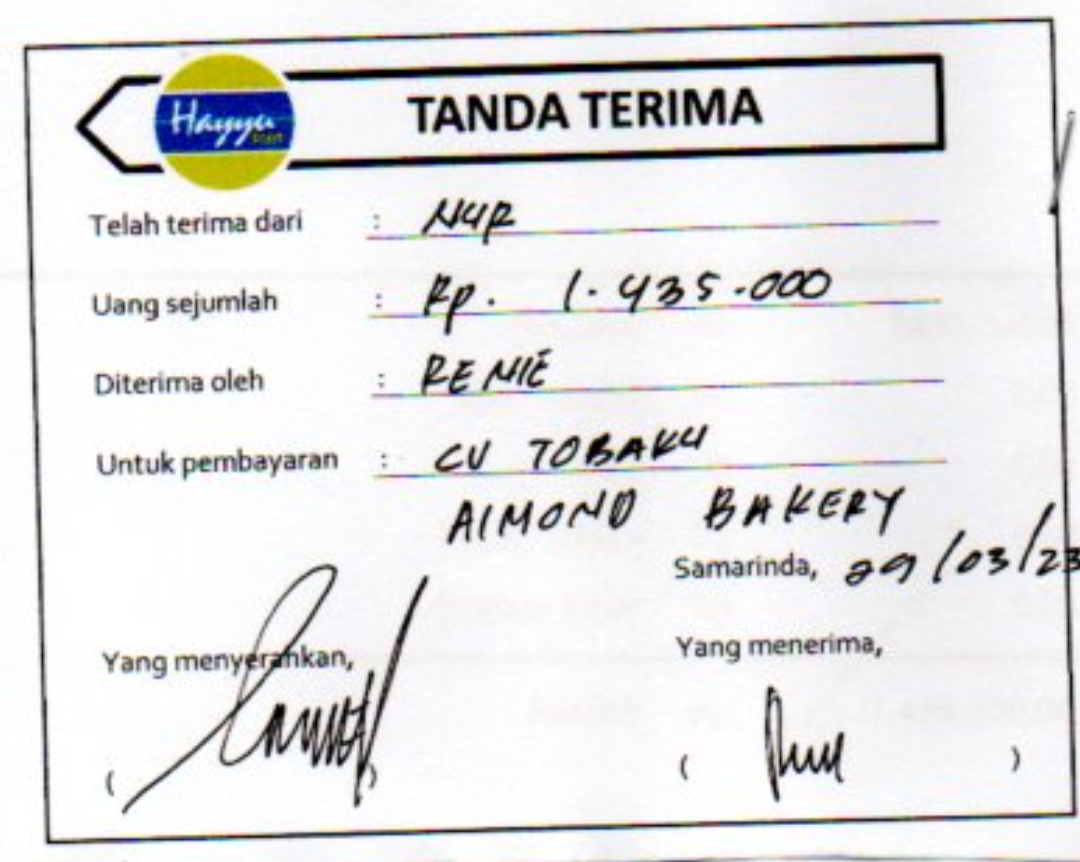 Hayyu
TANDA TERIMA
Telah terima dari : NUR
Uang sejumlah : Rp. 1.435.000
Diterima oleh : RENIE
Untuk pembayaran : CV TOBAKU
AlMOND BAKERY
Samarinda, 29/03/23
Yang menyerahkan, Yang menerima,
( ) ( )